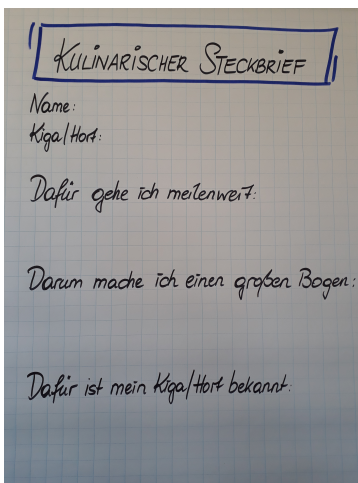 KULINARISCHER STECKBRIEF
Name:
Kiga/Hort:
Dafür gehe ich meilenweit:
Darum mache ich einen großen Bogen:
Dafür ist mein Kiga/Hort bekannt: